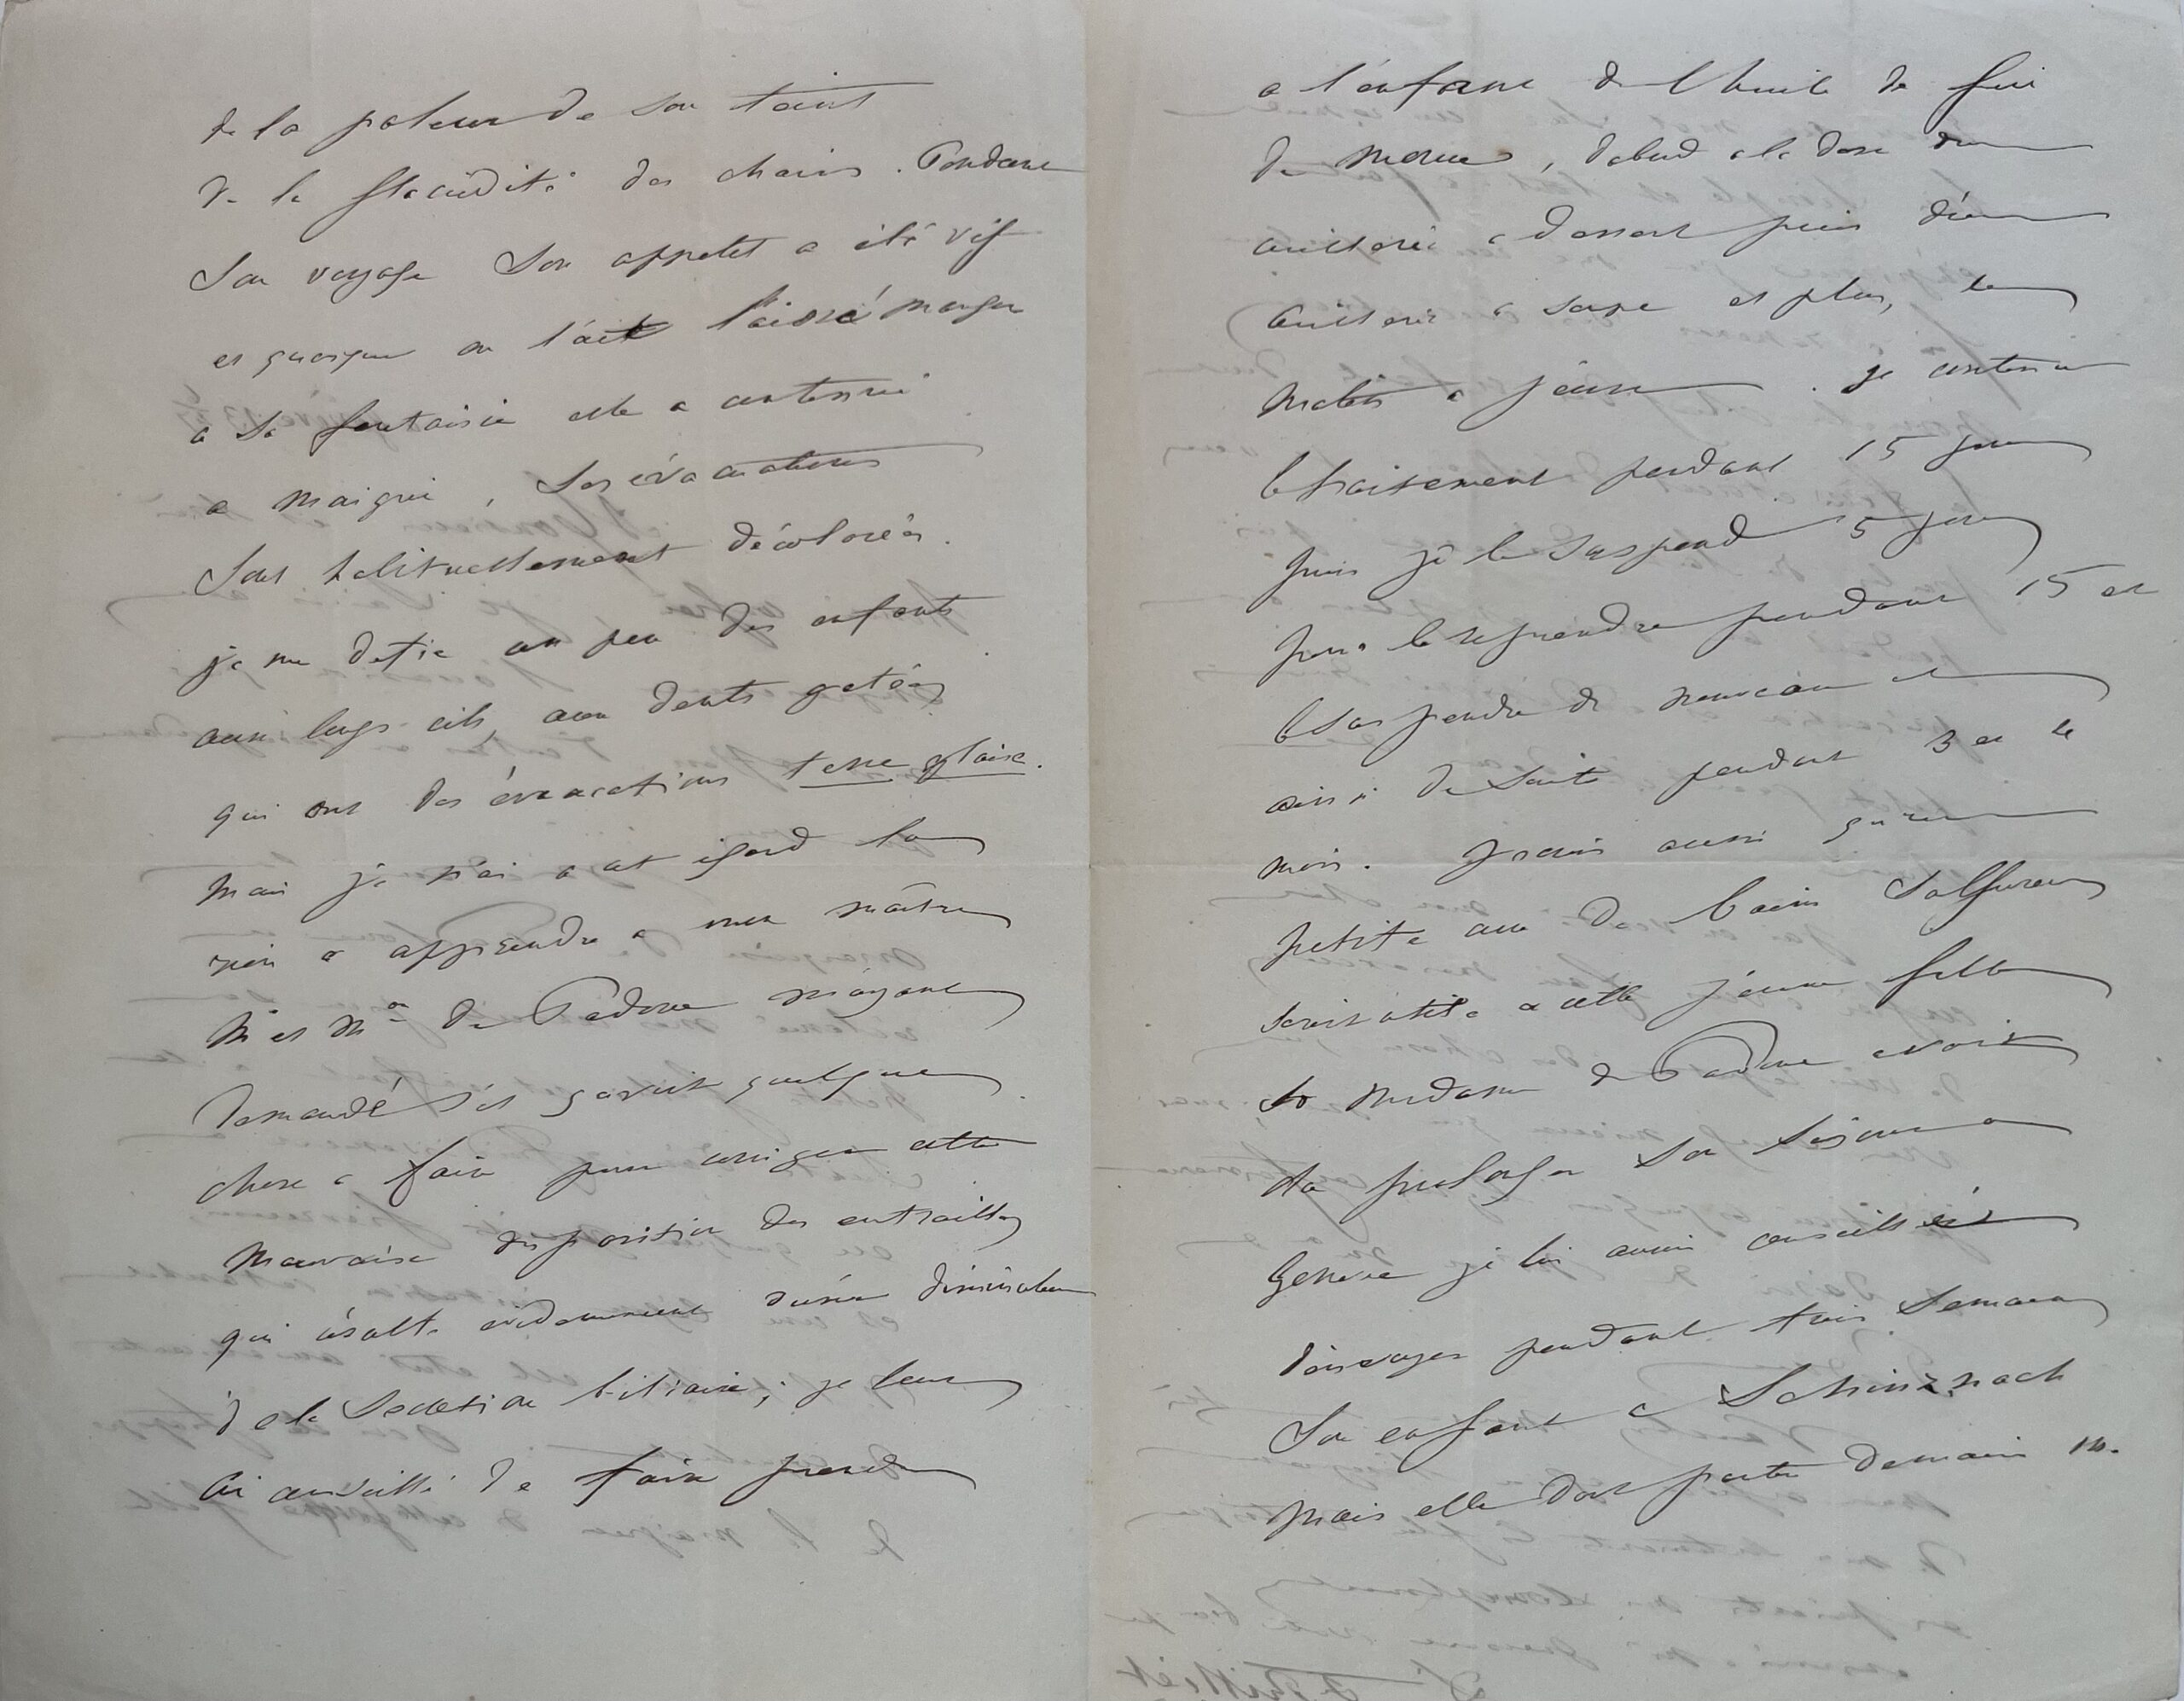 de la paleur de son teint
de la flaccidité des chairs. Pendant
son voyage son appetit a été vif
et quoique on l'ait laissé manger
a sa fantaisie elle a continué
a maigrir, ses évacuations
sont habituellement décolorées.
je me defie un peu des enfants
aux longs cils, aux dents gatées
qui ont des évacuations terre glaise.
mais je n'ai a cet egard
rien a apprendre a mon maitre
Mr et Me de Padoue m'ayant
demandé s'il y avait quelque
chose a faire pour corriger cette
mauvaise disposition des entrailles
qui résulte evidemment d'une diminution
de la secretion biliaire; je leur
ai conseillé de faire prendre
a l'enfant de l'huile de foie
de morue, dabord a la dose d'une
cuilleree a dessert puis d'une
cuilleree a soupe et plus, le
matin a jeun. je continue
le traitement pendant 15 jours
puis je le suspend 5 jours
pour le reprendre pendant 15 et
le suspendre de nouveau et
ainsi de suite pendant 3 et 4
mois. je crois aussi qu'une
petite cure de bains sulfureux
serait utile a cette jeune fille
si madame de Padoue avait
du prolonger son sejour a
Geneve je lui aurais conseillé
d'envoyer pendant trois semaines
son enfant a Schinznach
mais elle doit partir demain